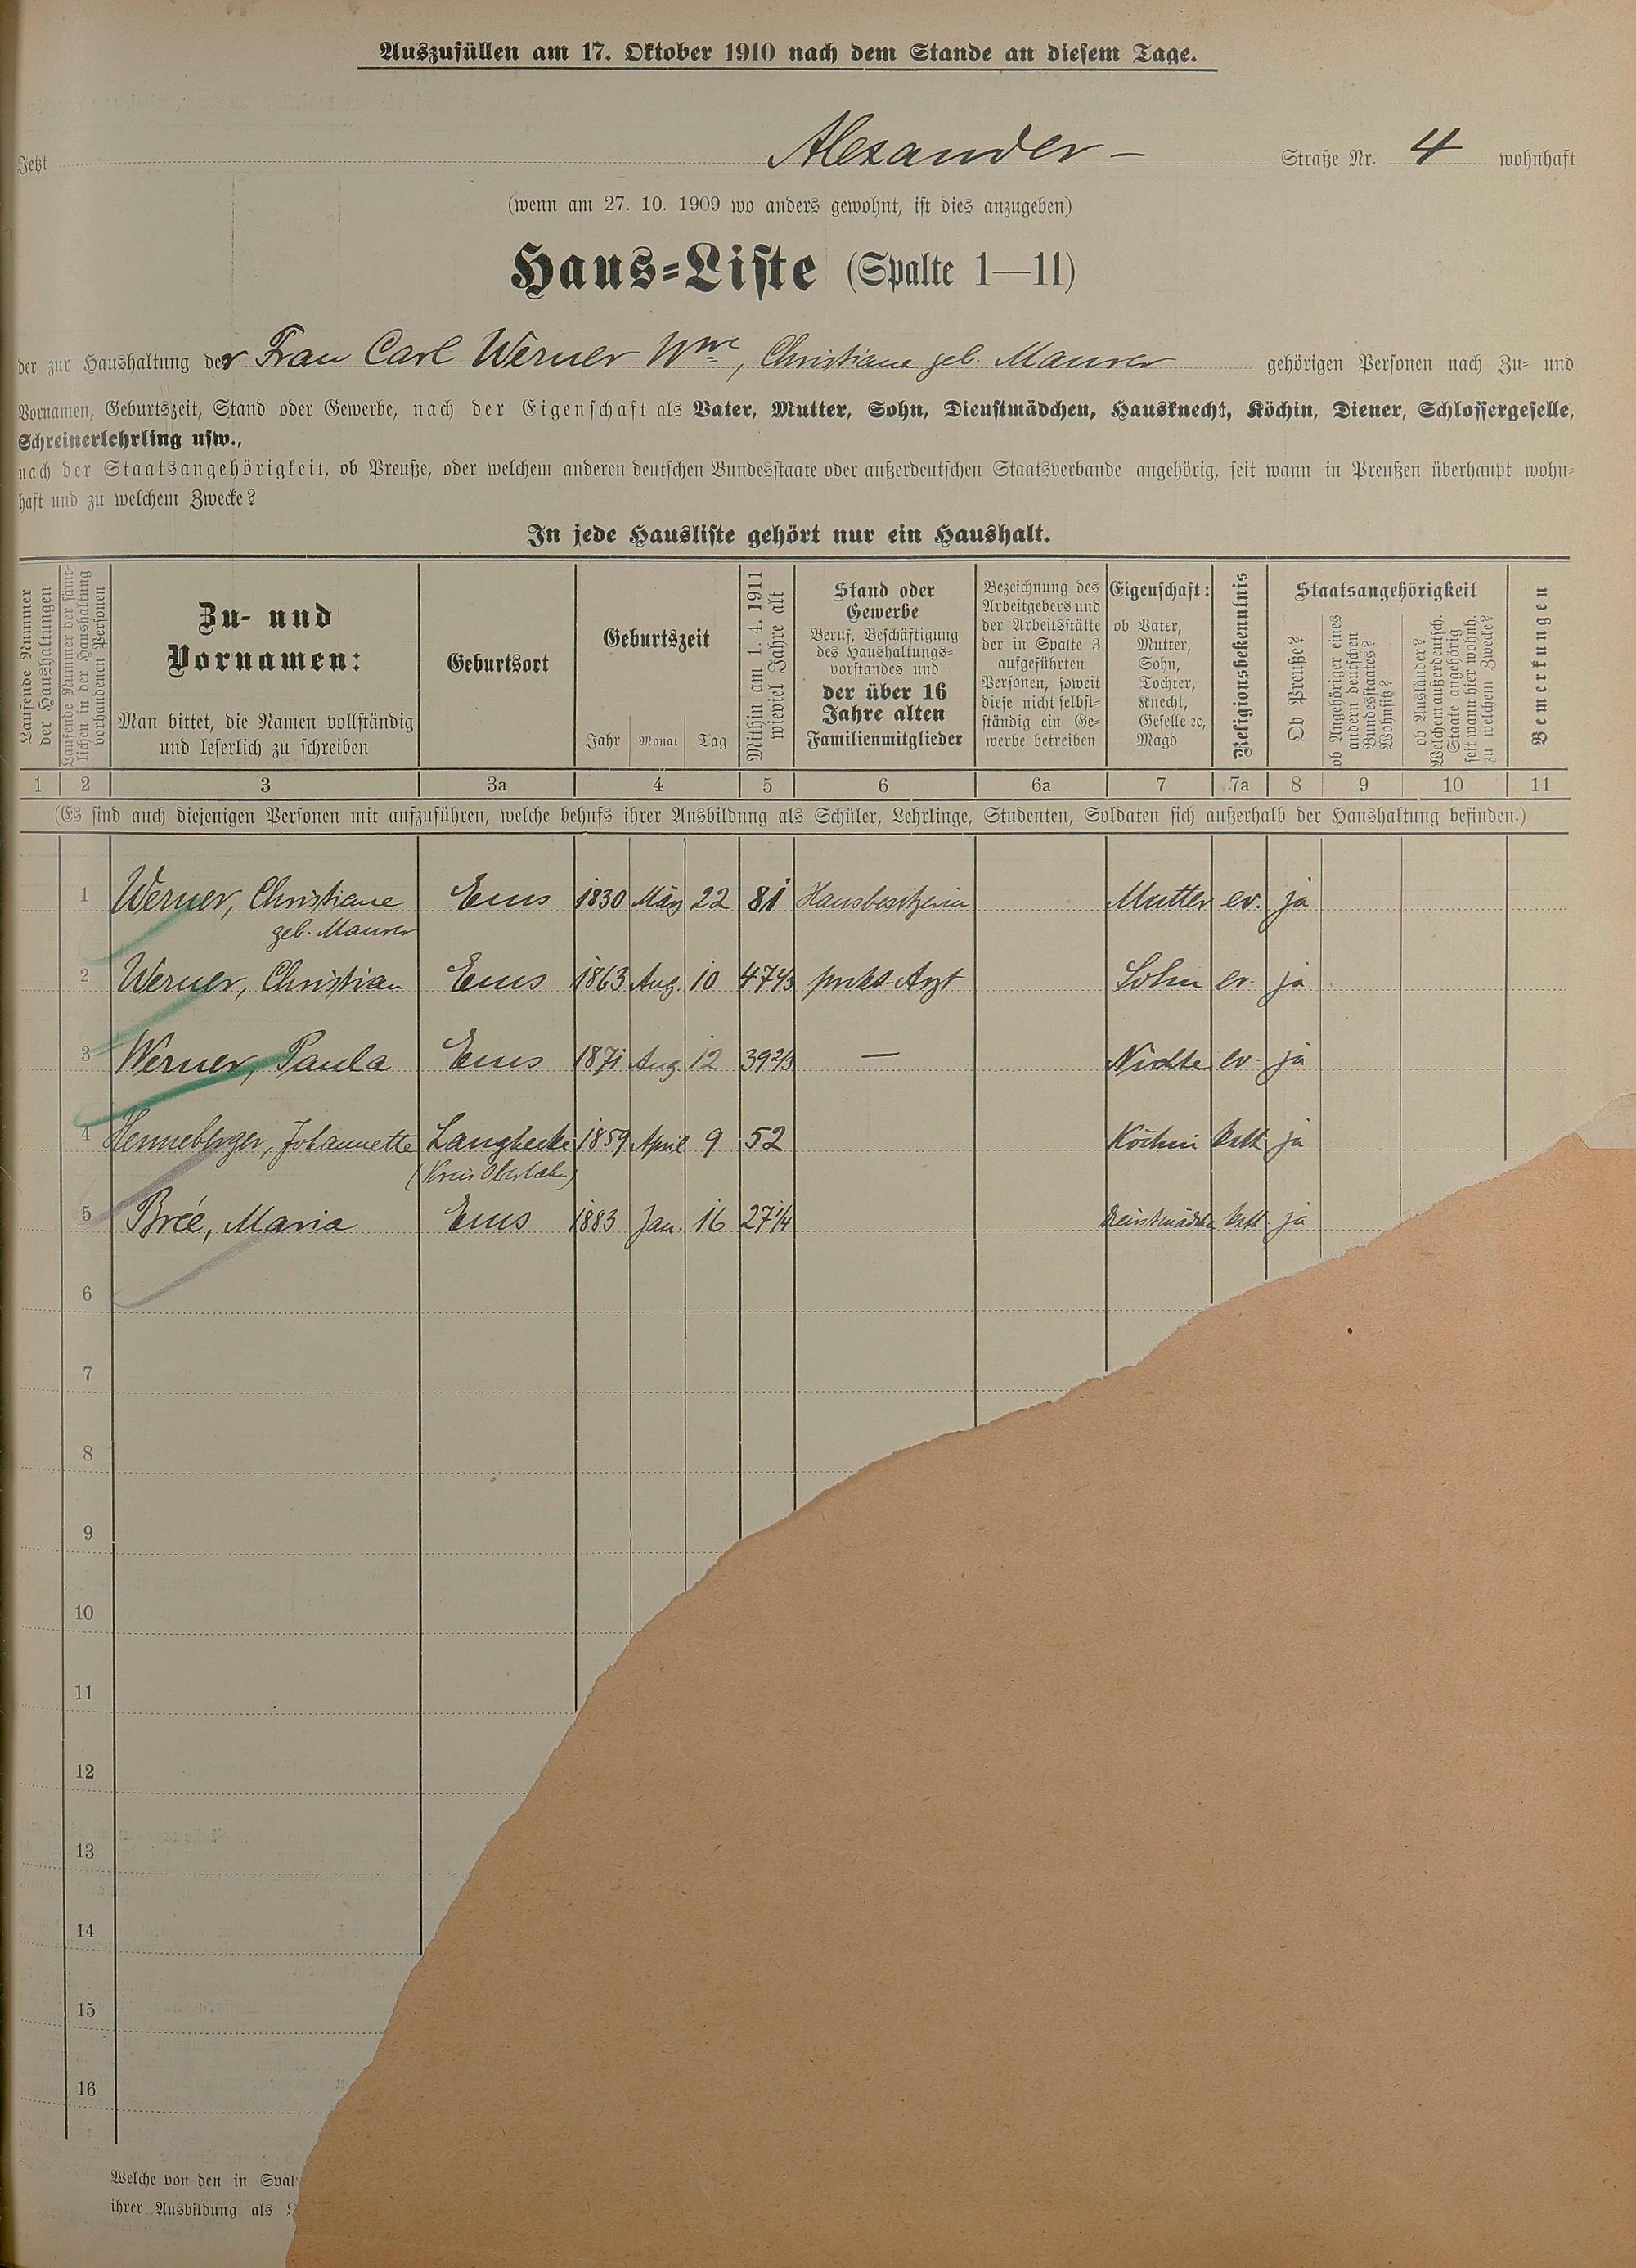 Auszufüllen am 17. Oktober 1910 nach dem Stande an diesem Tage.
Jetzt Alexander- Straße Nr. 4 wohnhaft
(wenn am 27. 10. 1909 wo anders gewohnt, ist dies anzugeben)
Haus-Liste (Spalte 1—11)
der zur Haushaltung der Frau Carl Werner Wwe, Christiane geb. Maurer gehörigen Personen nach Zu- und
Vornamen, Geburtszeit, Stand oder Gewerbe, nach der Eigenschaft als Vater, Mutter, Sohn, Dienstmädchen, Hausknecht, Köchin, Diener, Schlossergeselle,
Schreinerlehrling usw.,
nach der Staatsangehörigkeit, ob Preuße, oder welchem anderen deutschen Bundesstaate oder außerdeutschen Staatsverbande angehörig, seit wann in Preußen überhaupt wohn-
haft und zu welchem Zwecke?
In jede Hausliste gehört nur ein Haushalt.
Laufende Nummer
der Haushaltungen
Laufende Nummer der sämt-
lichen in der Haushaltung
vorhandenen Personen
Zu- und
Vornamen:
Man bittet, die Namen vollständig
und leserlich zu schreiben
Geburtsort
Geburtszeit
Jahr Monat Tag
Mithin am 1. 4. 1911
wieviel Jahre alt
Stand oder
Gewerbe
Beruf, Beschäftigung
des Haushaltungs-
vorstandes und
der über 16
Jahre alten
Familienmitglieder
Bezeichnung des
Arbeitgebers und
der Arbeitsstätte
der in Spalte 3
aufgeführten
Personen, soweit
diese nicht selbst-
ständig ein Ge-
werbe betreiben
Eigenschaft:
ob Vater,
Mutter,
Sohn,
Tochter,
Knecht,
Geselle ꝛc,
Magd
Religionsbekenntnis
Staatsangehörigkeit
Ob Preuße?
ob Angehöriger eines
andern deutschen
Bundesstaates?
Wohnsitz?
ob Ausländer?
Welchem außerdeutsch.
Staate angehörig
seit wann hier wohnh.
zu welchem Zwecke?
Bemerkungen
1 2 3 3a 4 5 6 6a 7 7a 8 9 10 11
(Es sind auch diejenigen Personen mit aufzuführen, welche behufs ihrer Ausbildung als Schüler, Lehrlinge, Studenten, Soldaten sich außerhalb der Haushaltung befinden.)
1 Werner, Christiane Ems 1830 März 22 81 Hausbesitzerin Mutter ev. ja
geb. Maurer
2 Werner, Christian Ems 1863 Aug. 10 47 2/3 prakt. Arzt Sohn ev. ja
3 Werner, Paula Ems 1871 Aug. 12 39 2/3 — Nichte ev. ja
4 Henneberger, Johannette Langhecke 1859 April 9 52 Köchin kath. ja
(Kreis Oberlahn)
5 Brée, Maria Ems 1883 Jan. 16 27 1/4 Dienstmädchen kath. ja
6
7
8
9
10
11
12
13
14
15
16
Welche von den in Spal
ihrer Ausbildung als